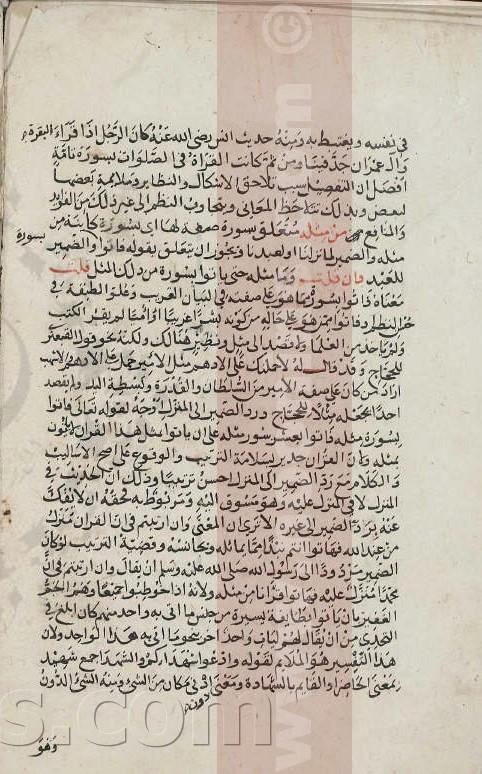 في نفسه ويغتبط به ومنه حديث انس رضي الله عنه كان الرجل اذا قراء البقرة
وال عمران جد فينا ومن ثمة كانت القراة في الصلوات بسورة تامة
افضل ان التفصيل سبب تلاحق الاشكال والنظاير وملايمة بعضها
لبعض وبذلك تتلاحظ المعاني ويتجاوب النظم الى غير ذلك من الفوايد
والمنافع من مثله متعلق بسورة صفة لها اى بسورة كاينة من
بسورة
مثله والضمير لما نزلنا او لعبدنا ويجوز ان يتعلق بقوله فاتوا والضمير
للعبد فان قلت وما مثله حتى ياتوا بسورة من ذلك المثل قلت
معناه فاتوا بسورة مما هو على صفته في البيان الغريب وعلو الطبقة في
حسن النظم او فاتوا ممن هو على حاله من كونه بشرا عربيا او اميا لم يقرء الكتب
ولم ياخذ من العلما ولا قصد الى مثل ونظير هنالك ولكنه نحو قول القبعثرى
للحجاج وقد قال له لاحملنك على الادهم مثل الامير حمل على الادهم والاشهب
اراد من كان على صفة الامير من السلطان والقدرة وبسطة اليد ولم يقصد
احدا يجعله مثلا للحجاج ورد الضمير الى المنزل اوجه لقوله تعالى فاتوا
بسورة مثله فاتوا بعشر سور مثله على ان ياتوا بمثل هذا القران لا ياتون
بمثله ولان القران جدير بسلامة الترتيب والوقوع على اصح الاساليب
والكلام مع رد الضمير الى المنزل احسن ترتيبا وذلك ان الحديث في
المنزل لا في المنزل عليه وهو مسوق اليه ومربوط به فحقه ان لا يفك
عنه برد الضمير الى غيره الا ترى ان المعنى وان ارتبتم في ان القران منزل
من عند الله فهاتوا انتم نبذا مما يماثله ويجانسه وقضية الترتيب لو كان
الضمير مردودا الى رسول الله صلى الله عليه وسلم ان يقال وان ارتبتم في ان
محمدا منزل عليه فهاتوا قرانا من مثله ولانه اذا خوطبوا جميعا وهم الجم
الغفير بان ياتوا بطايفة يسيرة من جنس ما اتى به واحد منهم كان ابلغ في
التحدى من ان يقال لهم ليات واحد اخر بنحو ما اتى به هذا الواحد ولان
هذا التفسير هو الملايم لقوله وادعوا شهداءكم والشهدا جمع شهيد
بمعنى الحاضر او القايم بالشهادة ومعنى دون ادنى مكان من الشئ ومنه الشئ الدون
وهو
s.com
©